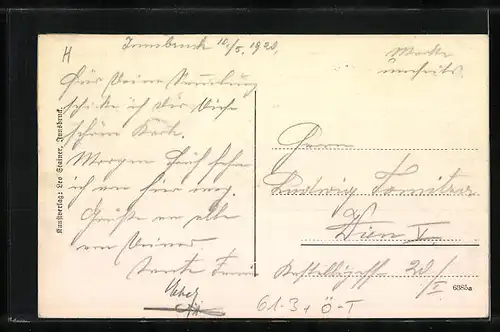 H
Innsbruck 10/5. 1920.
Marke
umseits.
Für Deine Sammlung
schicke ich Dir diese
schöne Karte.
Morgen
ich von hier weg.
Grüße an alle
von Deiner
Tante
Kunstverlag: Leo Stainer, Innsbruck.
Herrn
Ludwig
Wien V.
20/I
6385a
61-3 + Ö-T